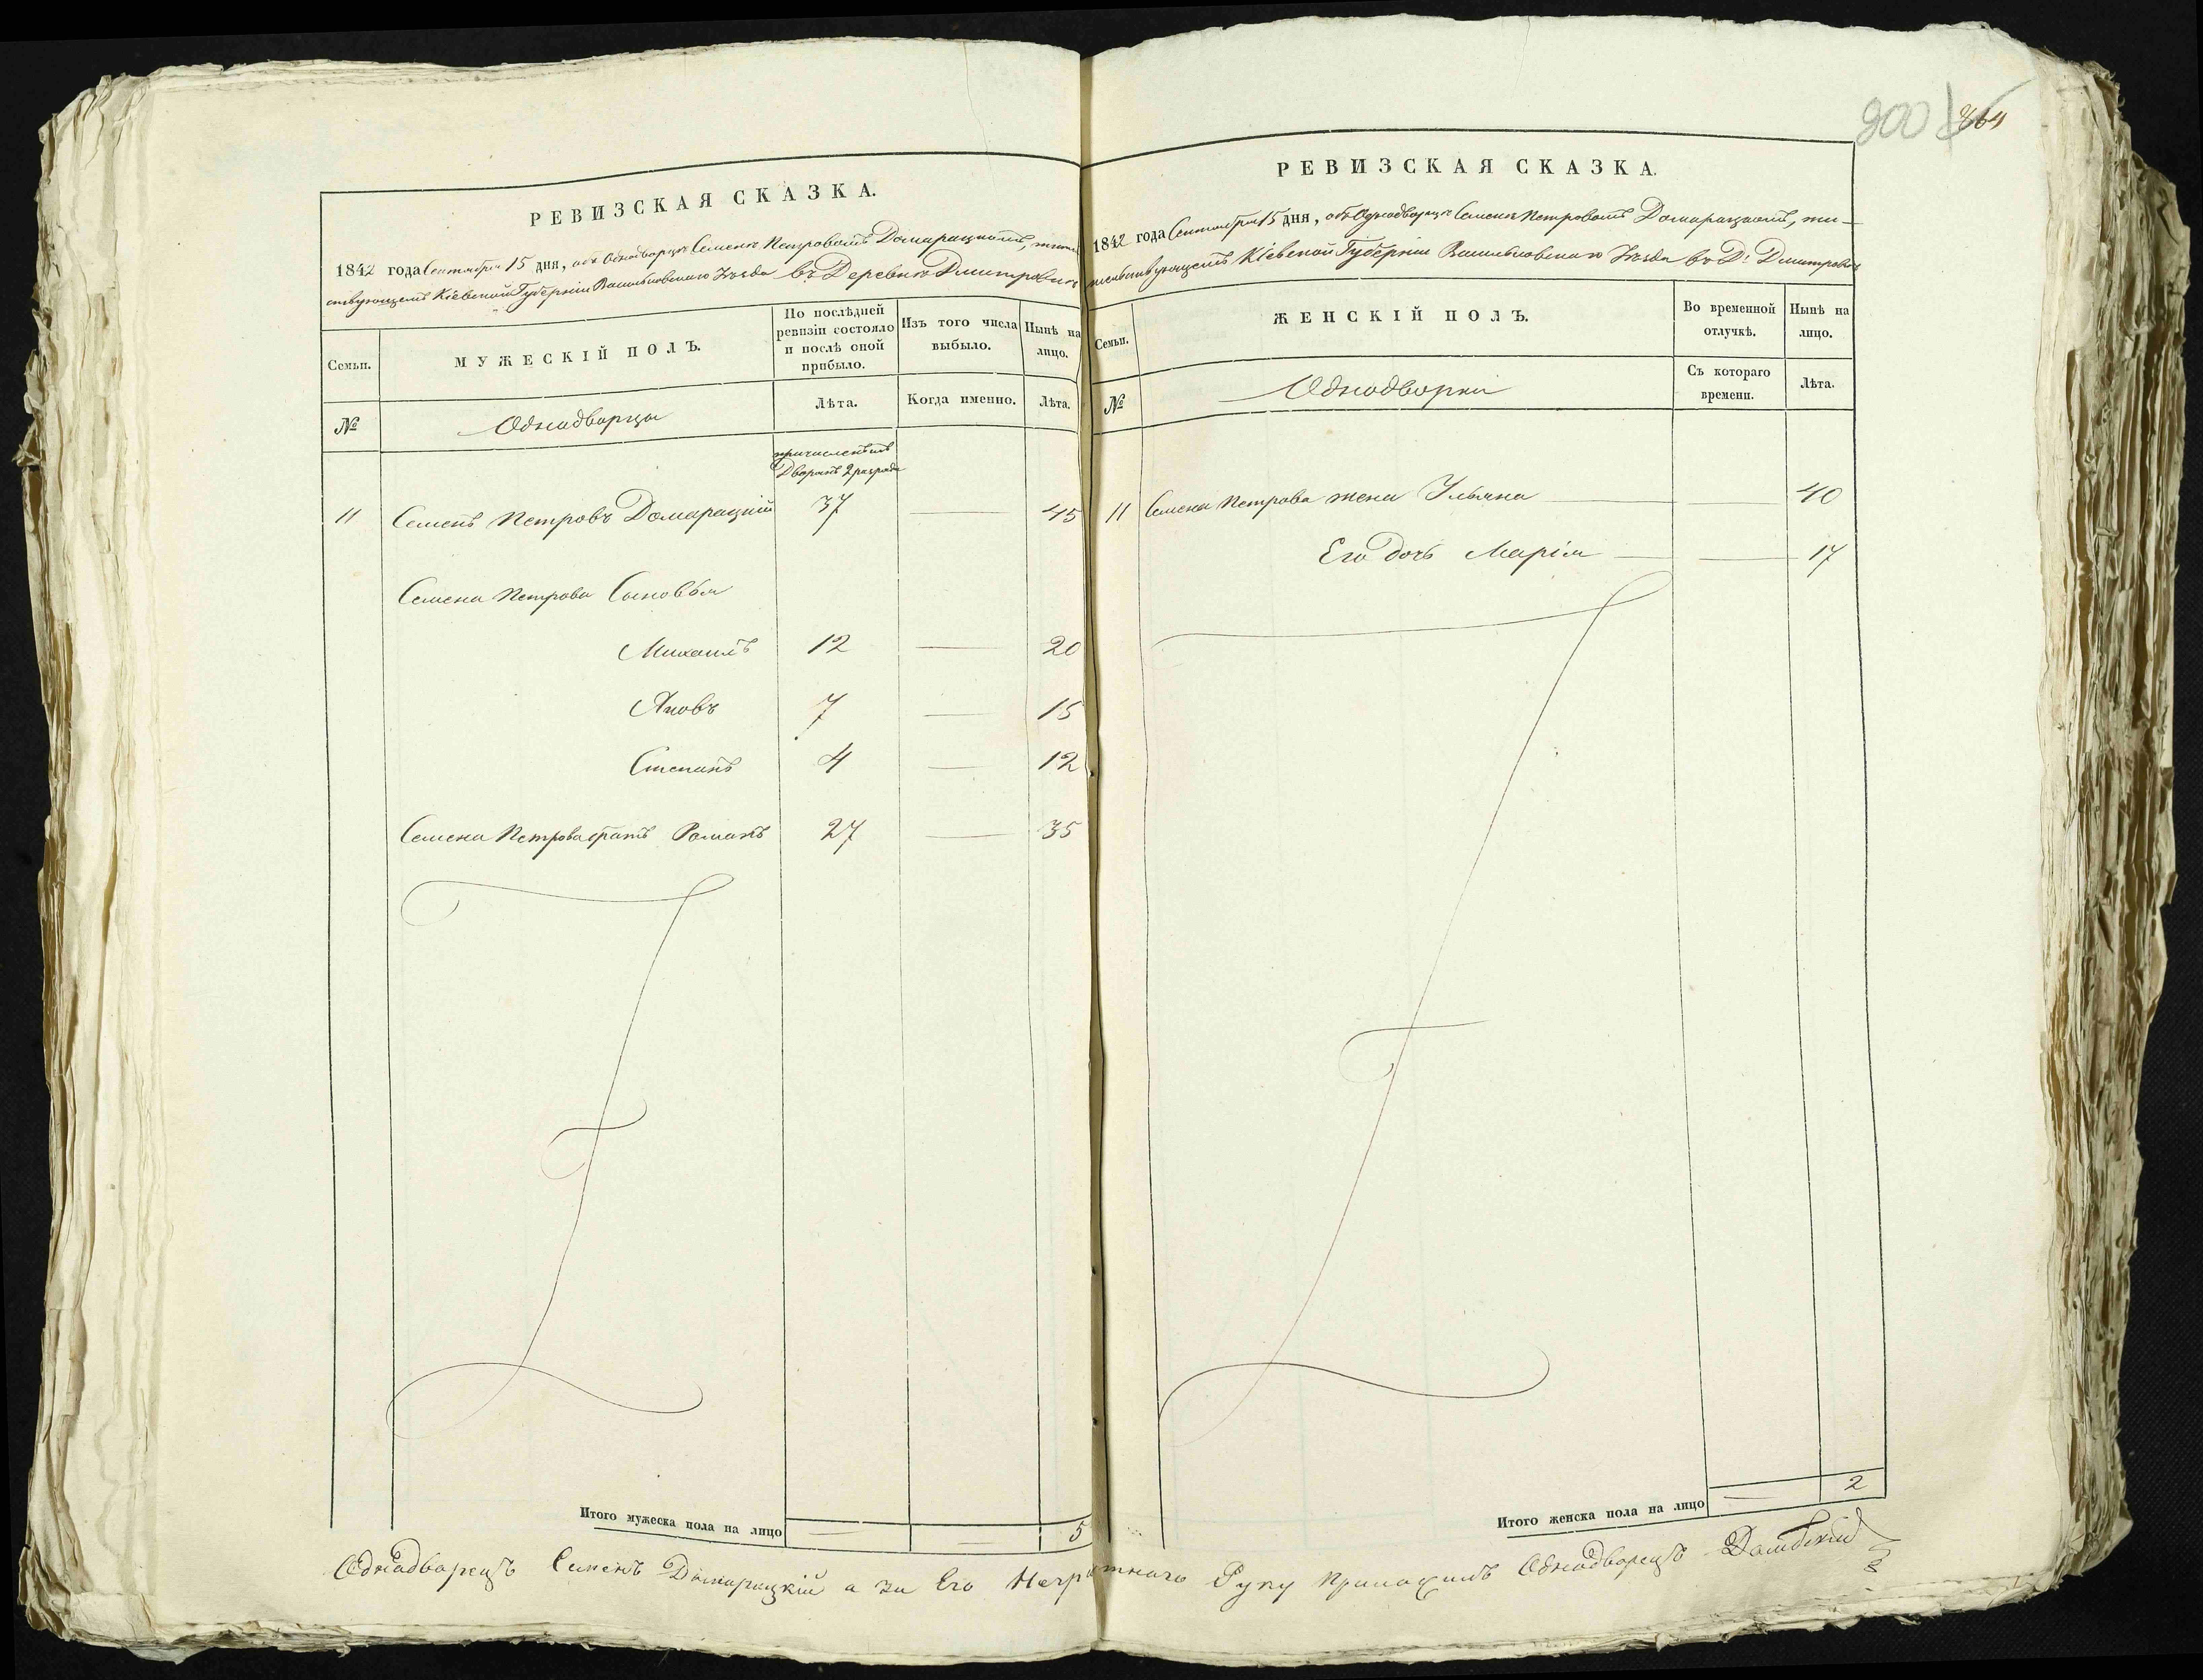 900 864
РЕВИЗСКАЯ СКАЗКА.
1842 года Сентября 15 дня, объ Однодворцѣ Семенѣ Петровомъ Домарацкомъ, жител
ствующемъ Кіевской Губерніи Васильковскаго Уѣзда въ Деревнѣ Дмитровкѣ
Семьи.
МУЖЕСКІЙ ПОЛЪ.
По послѣдней ревизіи состояло и послѣ оной прибыло.
Изъ того числа выбыло.
Нынѣ на лицо.
№
Однодворцы
Лѣта.
Когда именно.
Лѣта.
причисленъ изъ
Дворянъ 2 разряда
11 Семенъ Петровъ Домарацкій 37 — 45
Семена Петрова Сыновья
Михаилъ 12 — 20
Яковъ 7 — 15
Степанъ 4 — 12
Семена Петрова братъ Романъ 27 — 35
Итого мужеска пола на лицо — — 5
РЕВИЗСКАЯ СКАЗКА.
1842 года Сентября 15 дня, объ Однодворцѣ Семенѣ Петровомъ Домарацкомъ, жи-
тельствующемъ Кіевской Губерніи Васильковскаго Уѣзда въ Д: Дмитровкѣ
Семьи.
ЖЕНСКІЙ ПОЛЪ.
Во временной отлучкѣ.
Нынѣ на лицо.
№
Однодворки
Съ котораго времени.
Лѣта.
11 Семена Петрова жена Ульяна — — 40
Его дочь Марія — — 17
Итого женска пола на лицо — 2
Однодворецъ Семенъ Домарацкій а за Его Неграмотнаго Руку Приложилъ Однодворецъ